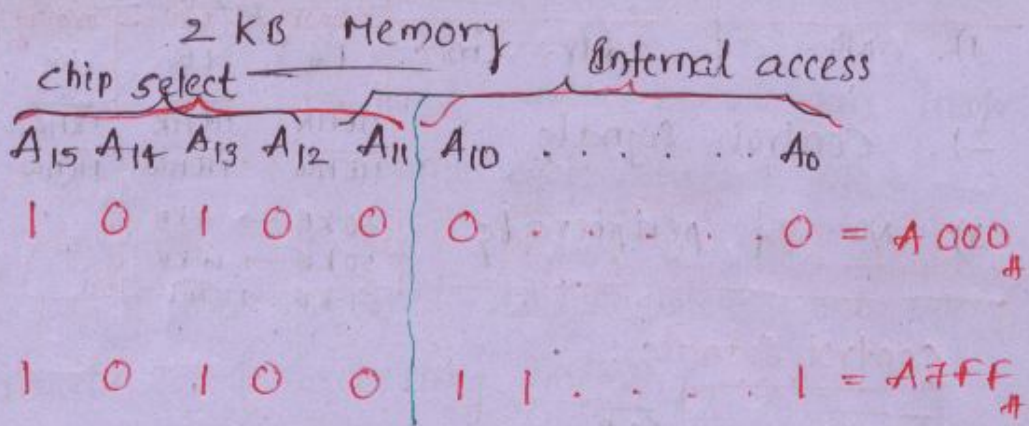 2 KB Memory
chip select Internal access
A15 A14 A13 A12 A11 A10 . . . . . . . A0
1 0 1 0 0 0 . . . . . . 0 = A000H
1 0 1 0 0 1 1 . . . . 1 = A7FFH